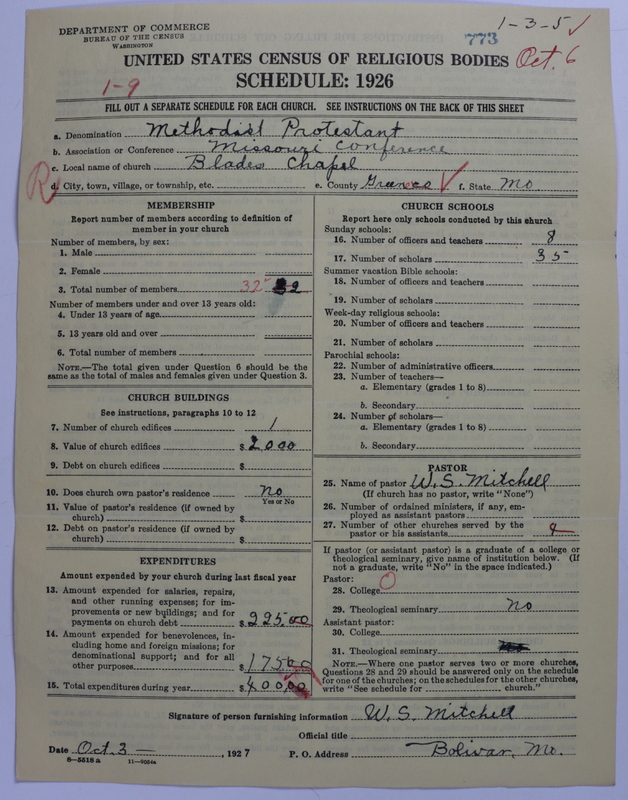 DEPARTMENT OF COMMERCE
BUREAU OF THE CENSUS
WASHINGTON
773
1-3-5 ✓
UNITED STATES CENSUS OF RELIGIOUS BODIES
Oct. 6
SCHEDULE: 1926
1-9
FILL OUT A SEPARATE SCHEDULE FOR EACH CHURCH. SEE INSTRUCTIONS ON THE BACK OF THIS SHEET
a. Denomination Methodist Protestant
b. Association or Conference Missouri Conference
c. Local name of church Blades Chapel
R
d. City, town, village, or township, etc. e. County Greene ✓ f. State Mo
MEMBERSHIP
Report number of members according to definition of
member in your church
Number of members, by sex:
1. Male
2. Female
3. Total number of members 32
Number of members under and over 13 years old:
4. Under 13 years of age
5. 13 years old and over
6. Total number of members
NOTE.—The total given under Question 6 should be the
same as the total of males and females given under Question 3.
CHURCH BUILDINGS
See instructions, paragraphs 10 to 12
7. Number of church edifices 1
8. Value of church edifices $ 2000
9. Debt on church edifices $
10. Does church own pastor's residence No
Yes or No
11. Value of pastor's residence (if owned by
church) $
12. Debt on pastor's residence (if owned by
church) $
EXPENDITURES
Amount expended by your church during last fiscal year
13. Amount expended for salaries, repairs,
and other running expenses; for im-
provements or new buildings; and for
payments on church debt $ 225.00
14. Amount expended for benevolences, in-
cluding home and foreign missions; for
denominational support; and for all
other purposes $ 175.00
15. Total expenditures during year $ 400.00
CHURCH SCHOOLS
Report here only schools conducted by this church
Sunday schools:
16. Number of officers and teachers 8
17. Number of scholars 35
Summer vacation Bible schools:
18. Number of officers and teachers
19. Number of scholars
Week-day religious schools:
20. Number of officers and teachers
21. Number of scholars
Parochial schools:
22. Number of administrative officers
23. Number of teachers—
a. Elementary (grades 1 to 8)
b. Secondary
24. Number of scholars—
a. Elementary (grades 1 to 8)
b. Secondary
PASTOR
25. Name of pastor W. S. Mitchell
(If church has no pastor, write "None")
26. Number of ordained ministers, if any, em-
ployed as assistant pastors
27. Number of other churches served by the
pastor or his assistants
If pastor (or assistant pastor) is a graduate of a college or
theological seminary, give name of institution below. (If
not a graduate, write "No" in the space indicated.)
Pastor:
28. College O
29. Theological seminary No
Assistant pastor:
30. College
31. Theological seminary
NOTE.—Where one pastor serves two or more churches,
Questions 28 and 29 should be answered only on the schedule
for one of the churches; on the schedules for the other churches,
write "See schedule for church."
Signature of person furnishing information W. S. Mitchell
Official title
Date Oct. 3 — , 1927 P. O. Address Bolivar, Mo.
8—5518 a 11—9054a